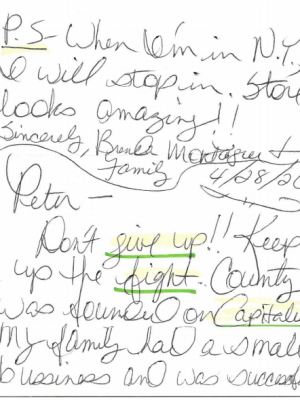 P.S- When I'm in N.Y.
I will stop in. Store
looks amazing!!
Sincerely, Brenda &
Family 4/28/20
Peter -
Don't give up!! Keep
up the fight. County
was founded on Capitali
My family had a small
bussiness and was success